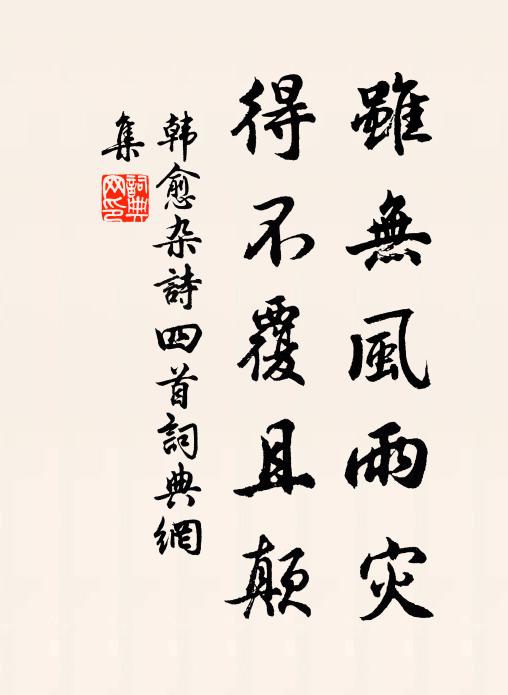 雖無風雨灾
得不覆且顛
韩愈杂詩四首詞典網
集
詞典网印